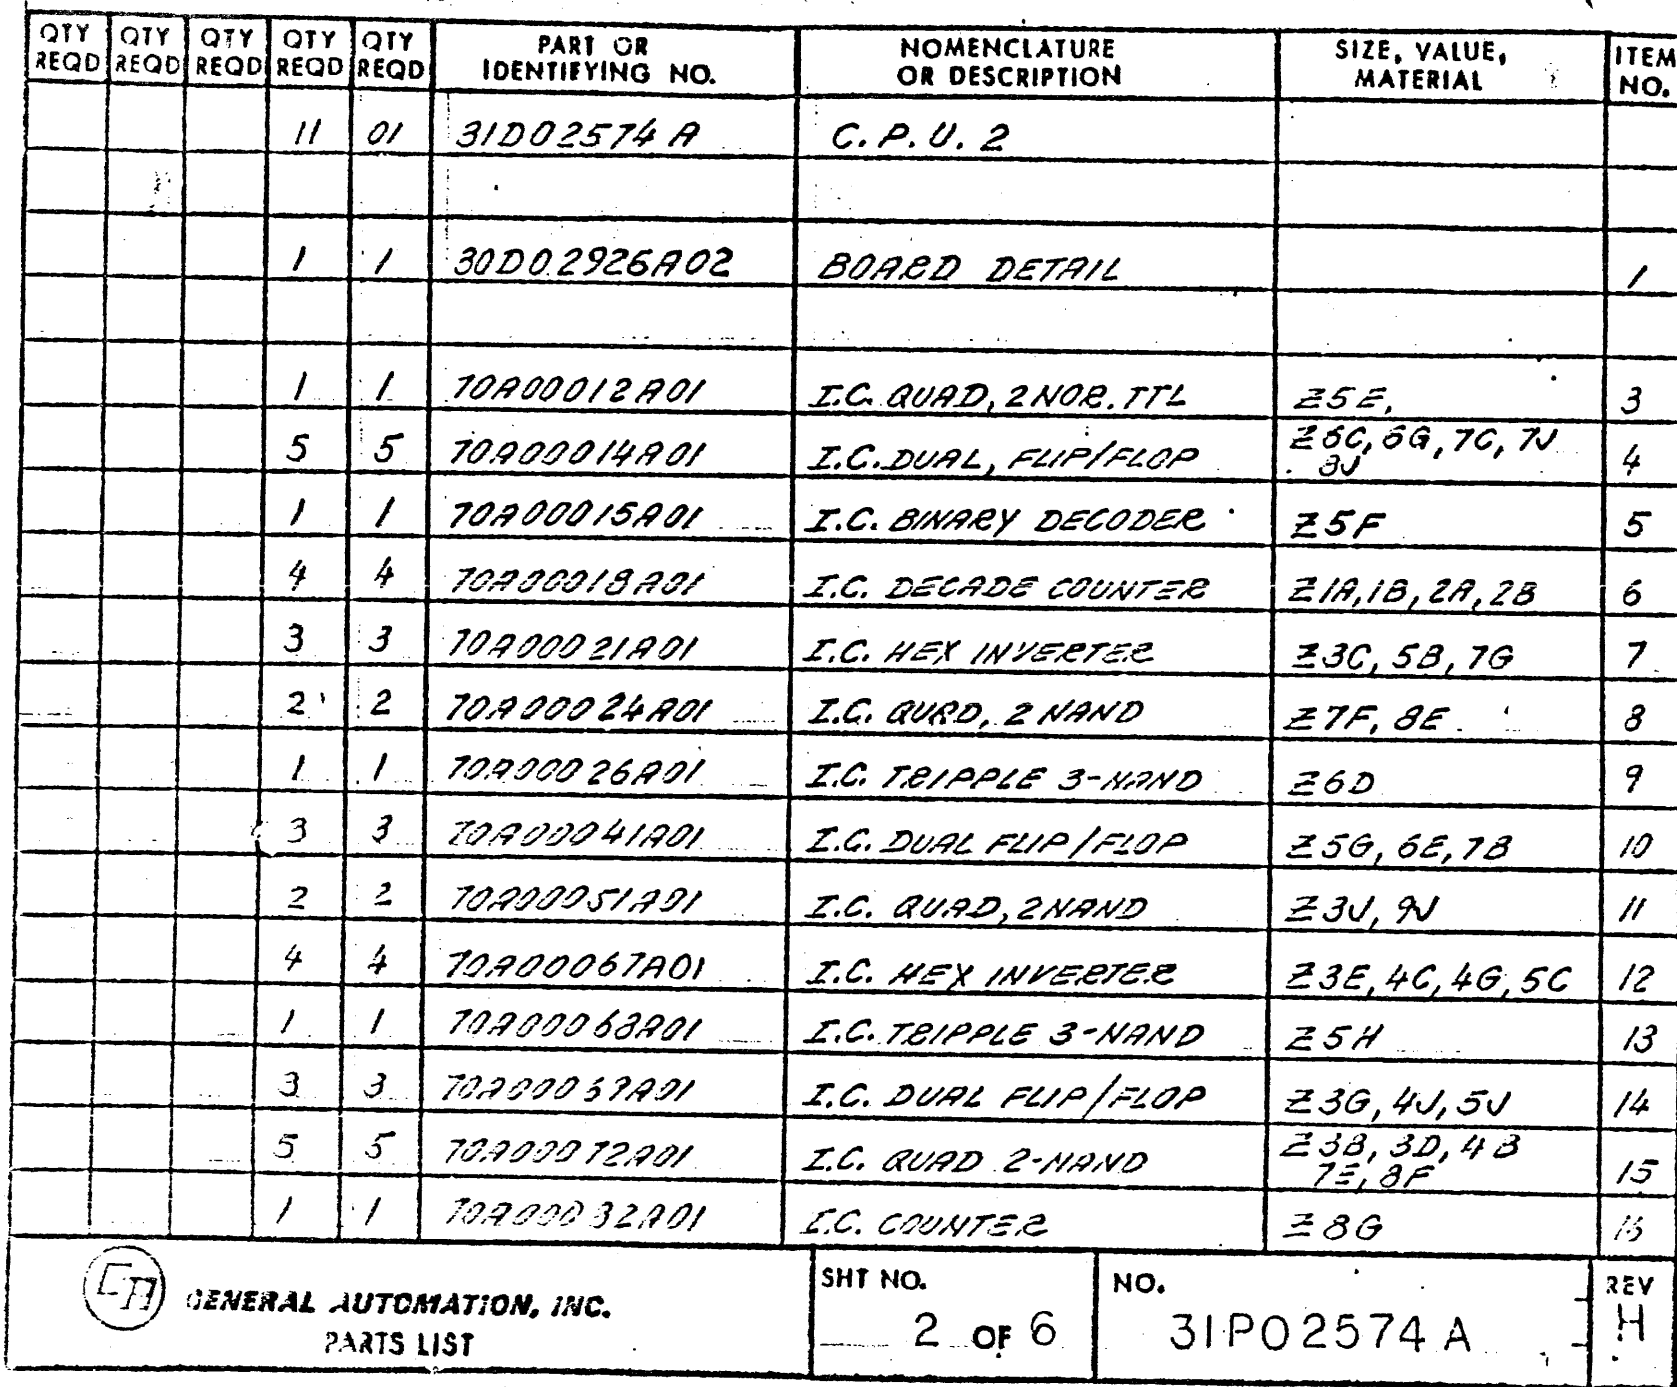 QTY REQD QTY REQD QTY REQD QTY REQD QTY REQD PART OR IDENTIFYING NO. NOMENCLATURE OR DESCRIPTION SIZE, VALUE, MATERIAL ITEM NO.
11 01 31D02574A C.P.U. 2
1 1 30D02926A02 BOARD DETAIL 1
1 1 70A00012A01 I.C. QUAD, 2 NOR. TTL Z5E, 3
5 5 70A00014A01 I.C. DUAL, FLIP/FLOP Z6C, 6G, 7C, 7J 4
1 1 70A00015A01 I.C. BINARY DECODER Z5F 5
4 4 70A00018A01 I.C. DECADE COUNTER Z1A, 1B, 2A, 2B 6
3 3 70A00021A01 I.C. HEX INVERTER Z3C, 5B, 7G 7
2 2 70A00024A01 I.C. QUAD, 2 NAND Z7F, 8E 8
1 1 70A00026A01 I.C. TRIPPLE 3-NAND Z6D 9
3 3 70A00041A01 I.C. DUAL FLIP/FLOP Z5G, 6E, 7B 10
2 2 70A00051A01 I.C. QUAD, 2 NAND Z3J, 9J 11
4 4 70A00067A01 I.C. HEX INVERTER Z3E, 4C, 4G, 5C 12
1 1 70A00068A01 I.C. TRIPPLE 3-NAND Z5H 13
3 3 I.C. DUAL FLIP/FLOP Z3G, 4J, 5J 14
5 5 70A00072A01 I.C. QUAD 2-NAND Z3B, 3D, 4B
7E, 8F 15
1 1 I.C. COUNTER Z8G
GA GENERAL AUTOMATION, INC.
PARTS LIST
SHT NO.
2 OF 6
NO.
31P02574A
REV
H